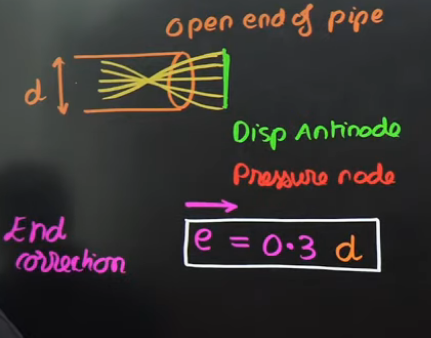 Open end of pipe
d
Disp Antinode
Pressure node
End
correction
e = 0.3 d